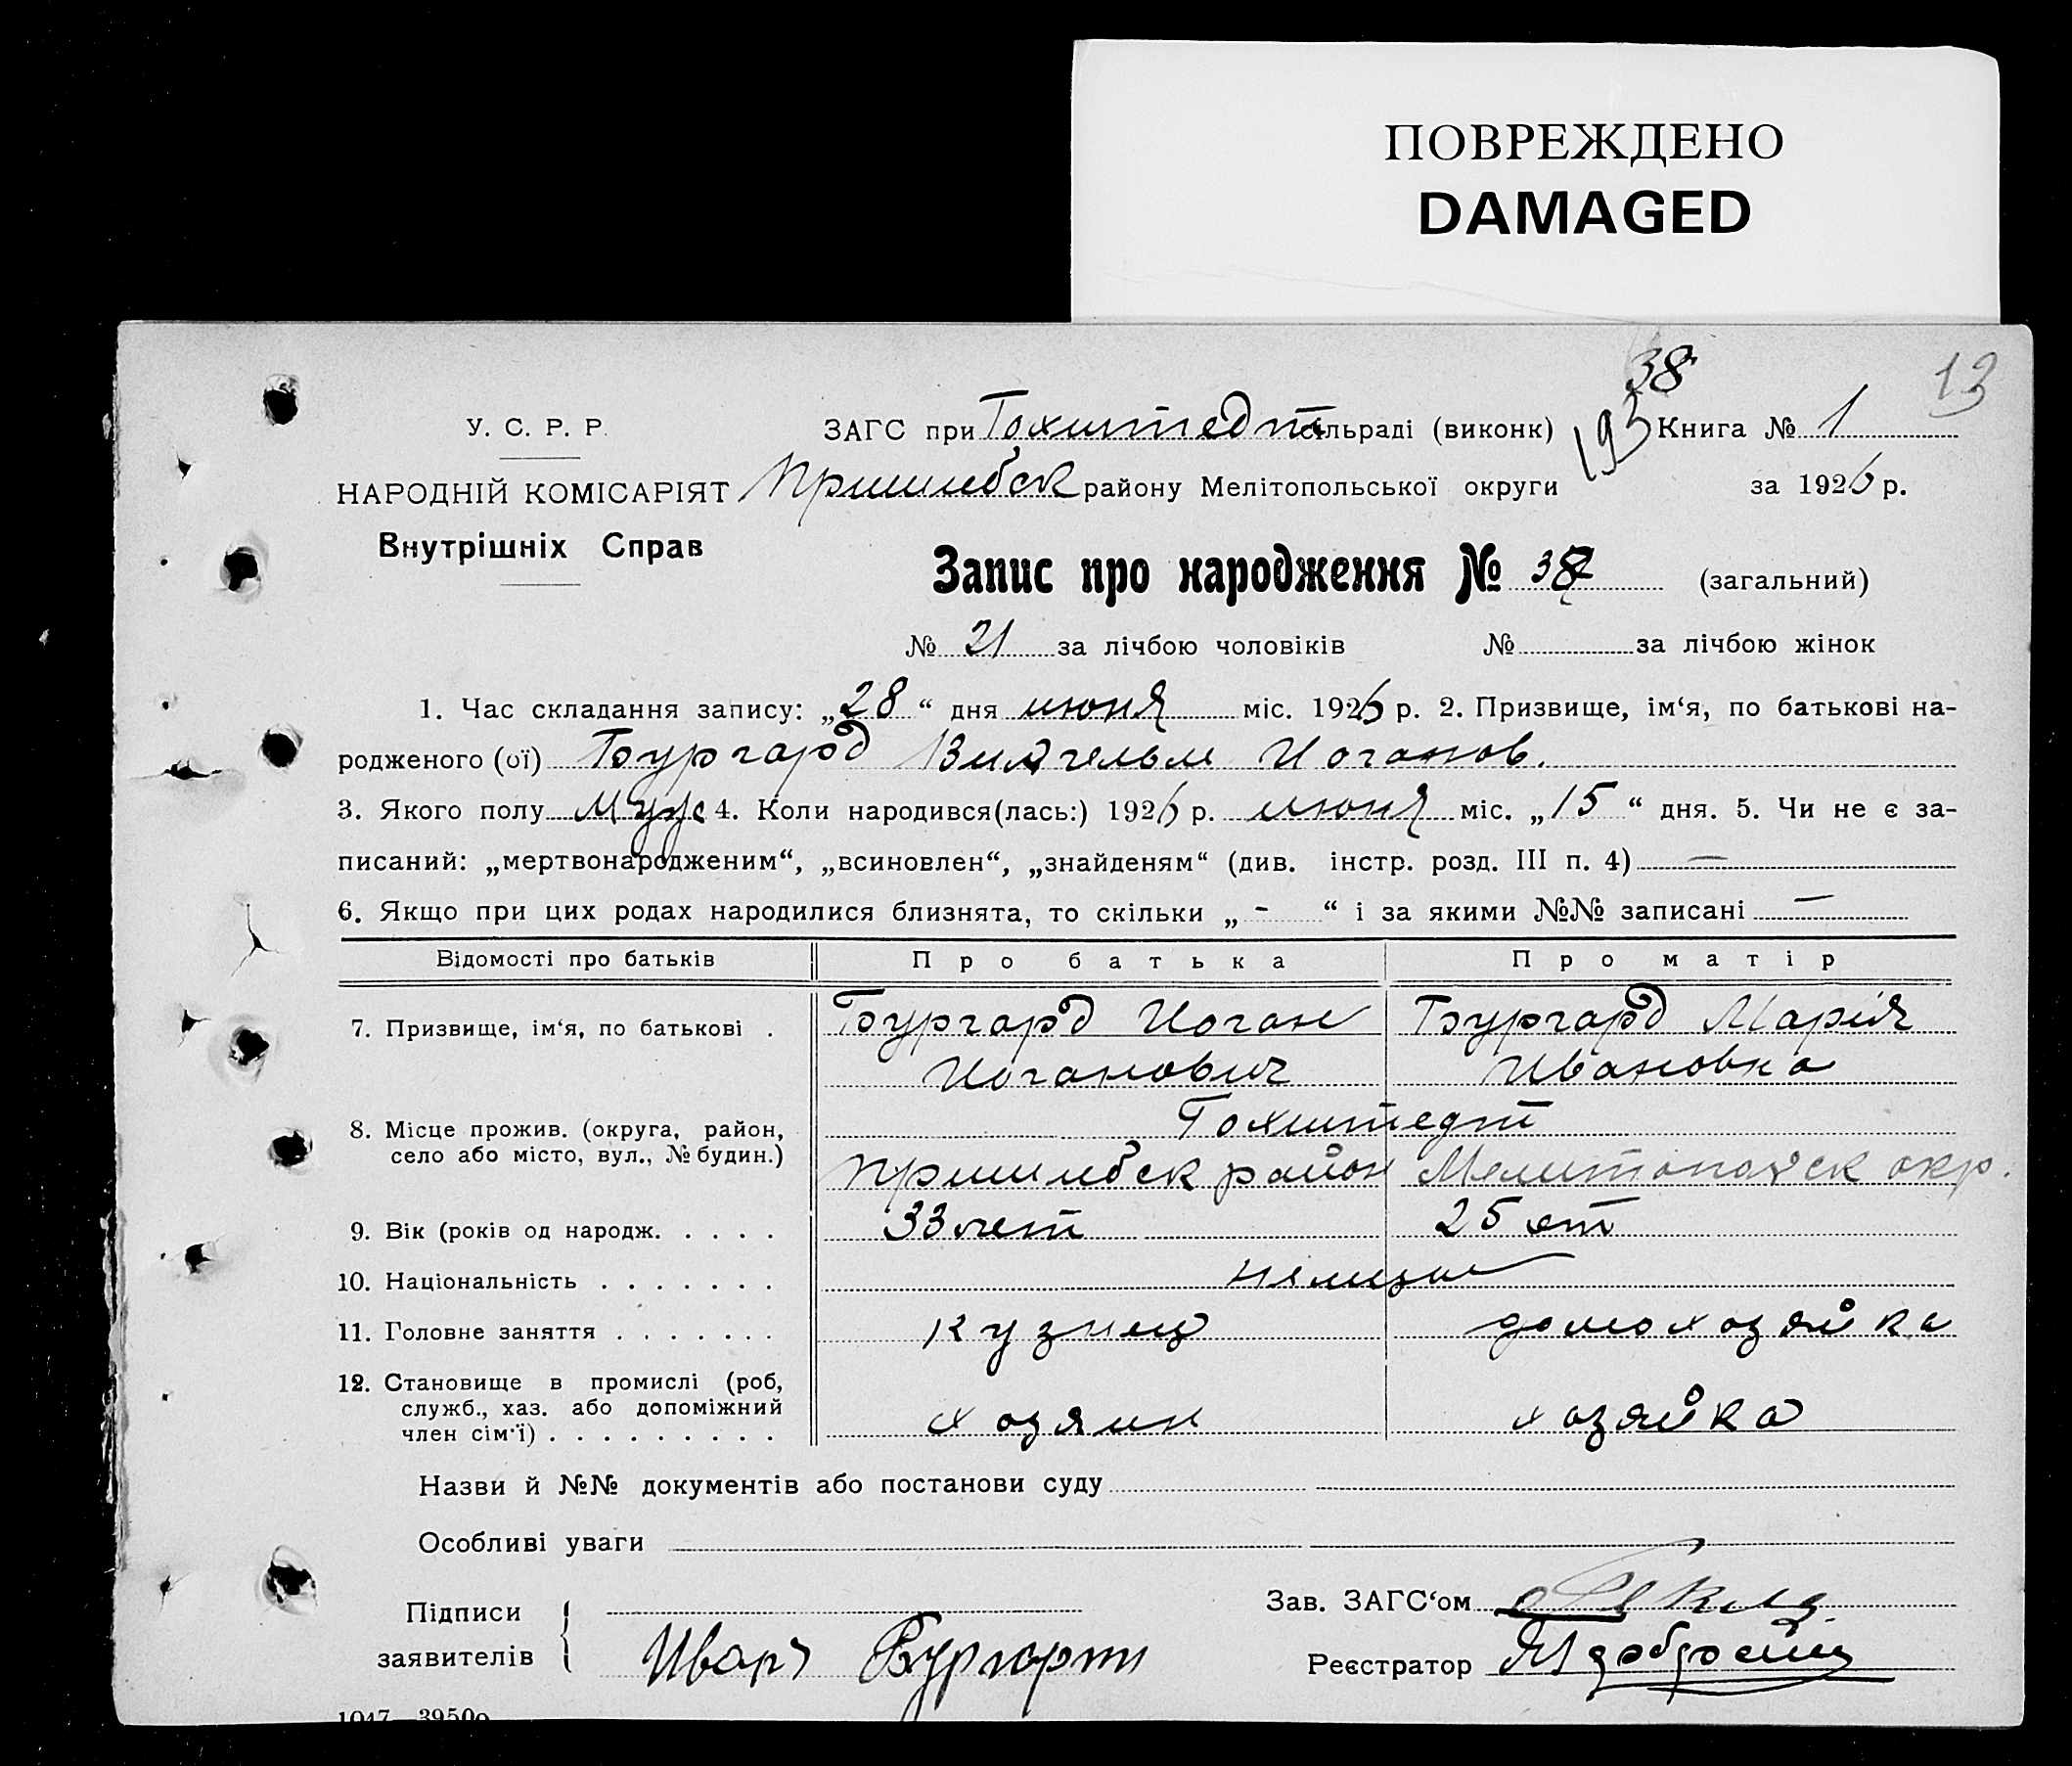 ПОВРЕЖДЕНО
DAMAGED
38
13
193
У. С. Р. Р.
ЗАГС при Гохштедт сільраді (виконк) Книга № 1
НАРОДНІЙ КОМІСАРІЯТ Пришибск району Мелітопольської округи за 1926 р.
Внутрішніх Справ
Запис про народження № 38 (загальний)
№ 21 за лічбою чоловіків № за лічбою жінок
1. Час складання запису: „28“ дня июня міс. 1926 р. 2. Призвище, ім‘я, по батькові на-
родженого (ої) Бургард Вилгельм Иоганов.
3. Якого полу Муж 4. Коли народився(лась:) 1926 р. июня міс. „15“ дня. 5. Чи не є за-
писаний: „мертвонародженим“, „всиновлен“, „знайденям“ (див. інстр. розд. III п. 4) —
6. Якщо при цих родах народилися близнята, то скільки „ - “ і за якими №№ записані —
Відомості про батьків Про батька Про матір
7. Призвище, ім‘я, по батькові . Бургард Иоган Бургард Марія
Иоганович Ивановна
8. Місце прожив. (округа, район, Гохштедт
село або місто, вул., № будин.) Пришибск район Мелитопольск окр.
9. Вік (років од народж. . . . . 33 лет 25 лет
10. Національність . . . . . . . немцы
11. Головне заняття . . . . . . . кузнец домохозяйка
12. Становище в промислі (роб,
служб., хаз. або допоміжний хозяин хозяйка
член сім‘ї) . . . . . . . . .
Назви й №№ документів або постанови суду
Особливі уваги
Зав. ЗАГС‘ом
Підписи
заявителів Иван Бургорт
Реєстратор
1047 3950